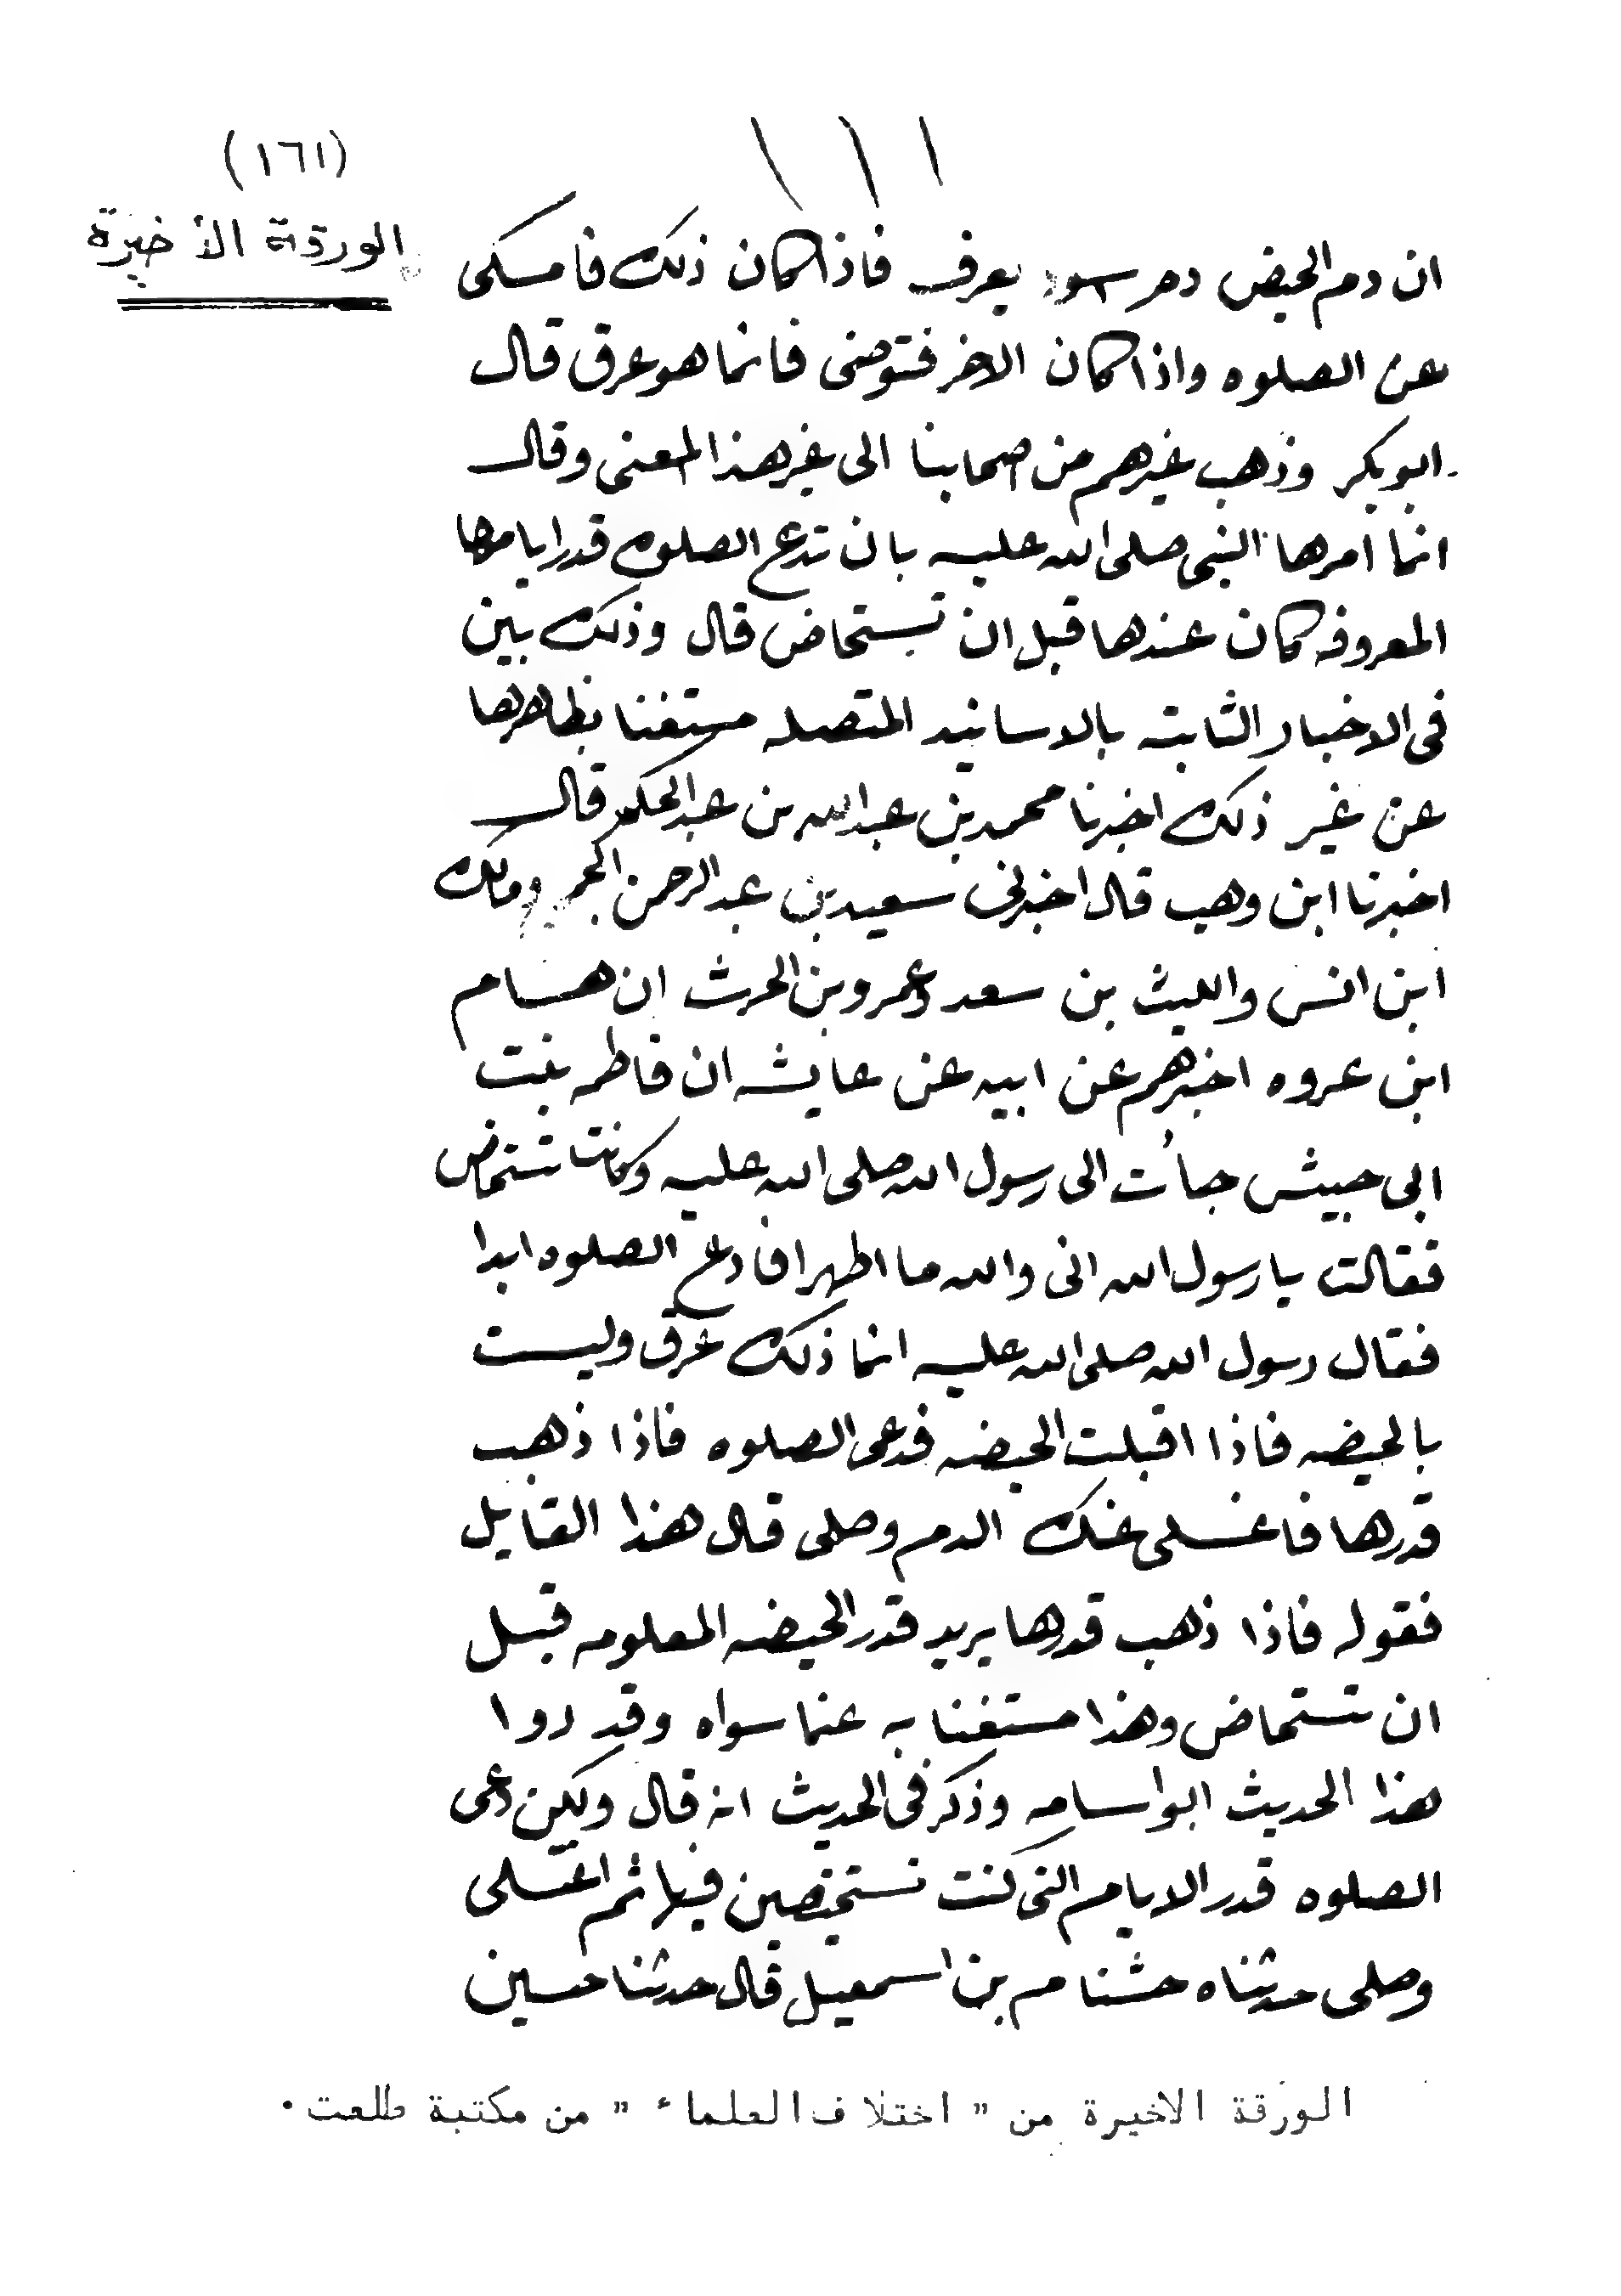 (١٦١)
الورقة الأخيرة
ان دم الحيض دم اسود يعرف فاذا كان ذلك فامسكى
عن الصلوه واذا كان الاخر فتوضى فانما هو عرق قال
ابو بكر وذهب غيرهم من اصحابنا الى غير هذا المعنى وقال
انما امرها النبى صلى الله عليه بان تدع الصلوه قدر ايامها
المعروفه كان عندها قبل ان تستحاض قال وذلك بين
فى الاخبار الثابته بالاسانيد المتصله مستغنا بظاهرها
عن غير ذلك اخبرنا محمد بن عبد الله بن عبد الحكم قال
اخبرنا ابن وهب قال اخبرنى سعيد بن عبد الرحمن الجمحى ومالك
ابن انس والليث بن سعد وعمرو بن الحرث ان هسام
ابن عروه اخبرهم عن ابيه عن عايشه ان فاطمه بنت
ابى حبيش جأت الى رسول الله صلى الله عليه وكانت تستحاض
فقالت يا رسول الله انى والله ما اطهر افادع الصلوه ابدا
فقال رسول الله صلى الله عليه انما ذلك عرق وليست
بالحيضه فاذا اقبلت الحيضه فدعى الصلوه فاذا ذهب
قدرها فاغسلى عنك الدم وصلى قال هذا القايل
فقوله فاذا ذهب قدرها يريد قدر الحيضه المعلومه قبل
ان تستحاض وهذا مستغنا به عنما سواه وقد روا
هذا الحديث ابو اسامه وذكر فى الحديث انه قال ولكن دعى
الصلوه قدر الايام التى كنت تستحيضين فيها ثم اغتسلى
وصلى حدثناه خشنام بن اسمعيل قال حدثنا حسين
الورقة الاخيرة من " اختلاف العلماء " من مكتبة طلعت .